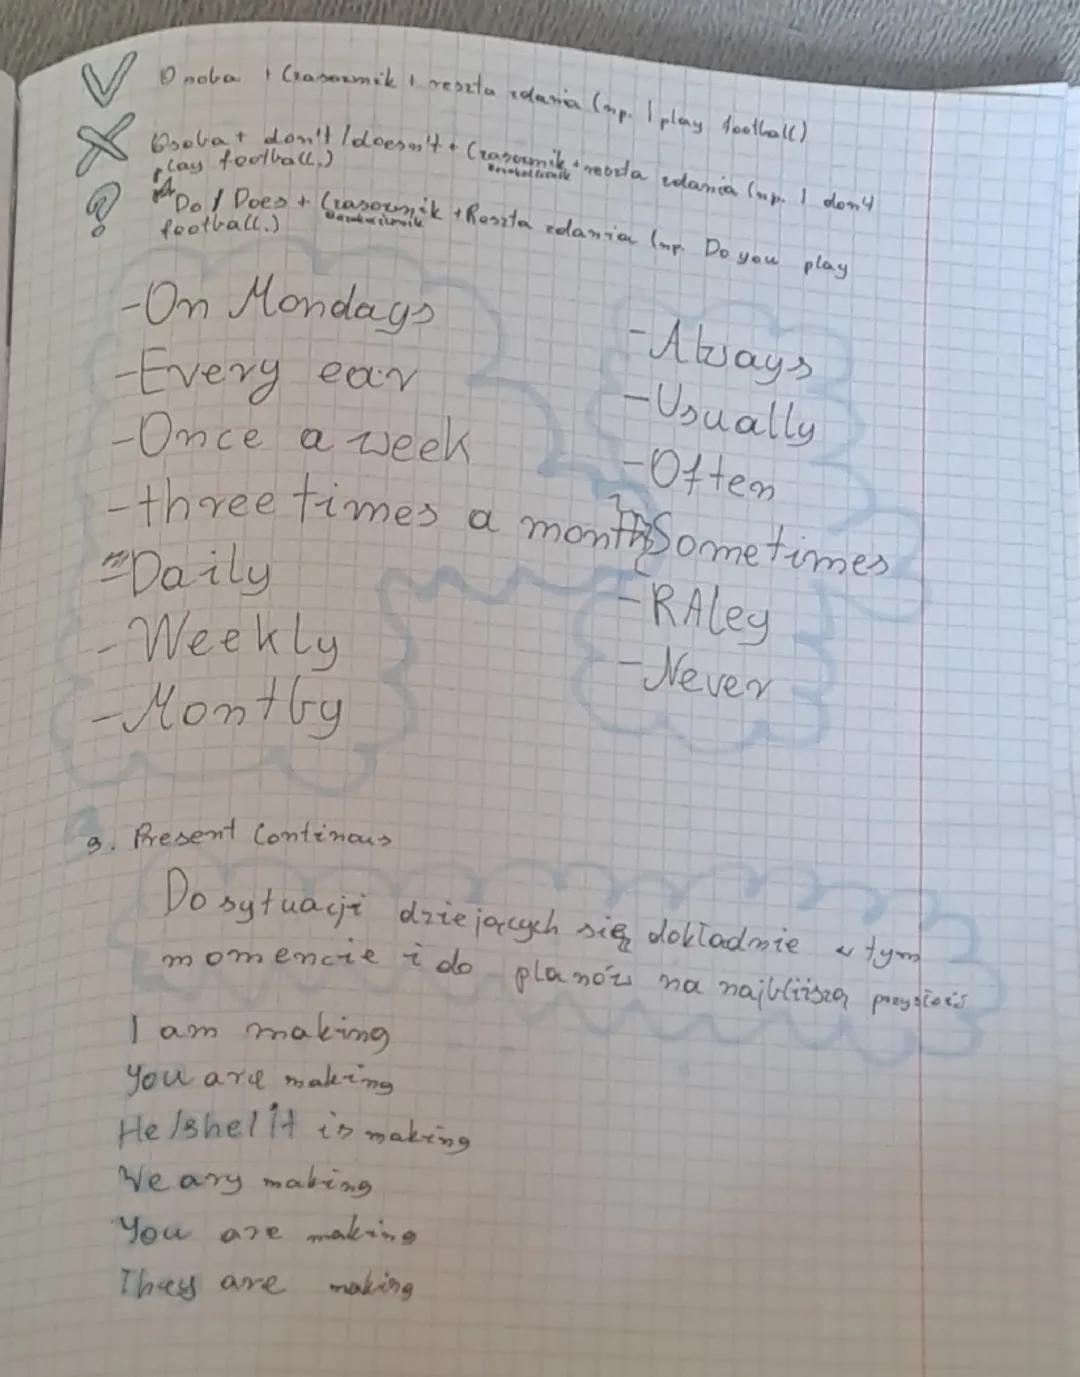 Osoba + Czasownik + reszta zdania (np. I play football)
Osoba + don't / doesn't + Czasownik + reszta zdania (np. I don't
play football.)
Do / Does + Czasownik + Reszta zdania (np. Do you play
football.)
- On Mondays
- Every ear
- Once a week
- three times a month
- Daily
- Weekly
- Montby
- Always
- Usually
- Often
- Sometimes
- RAley
- Never
3. Present Continous
Do sytuacji dziejących się dokładnie w tym
momencie i do planów na najbliższą przyszłość
I am making
You are making
He/she/it is making
We ary making
You are making
They are making